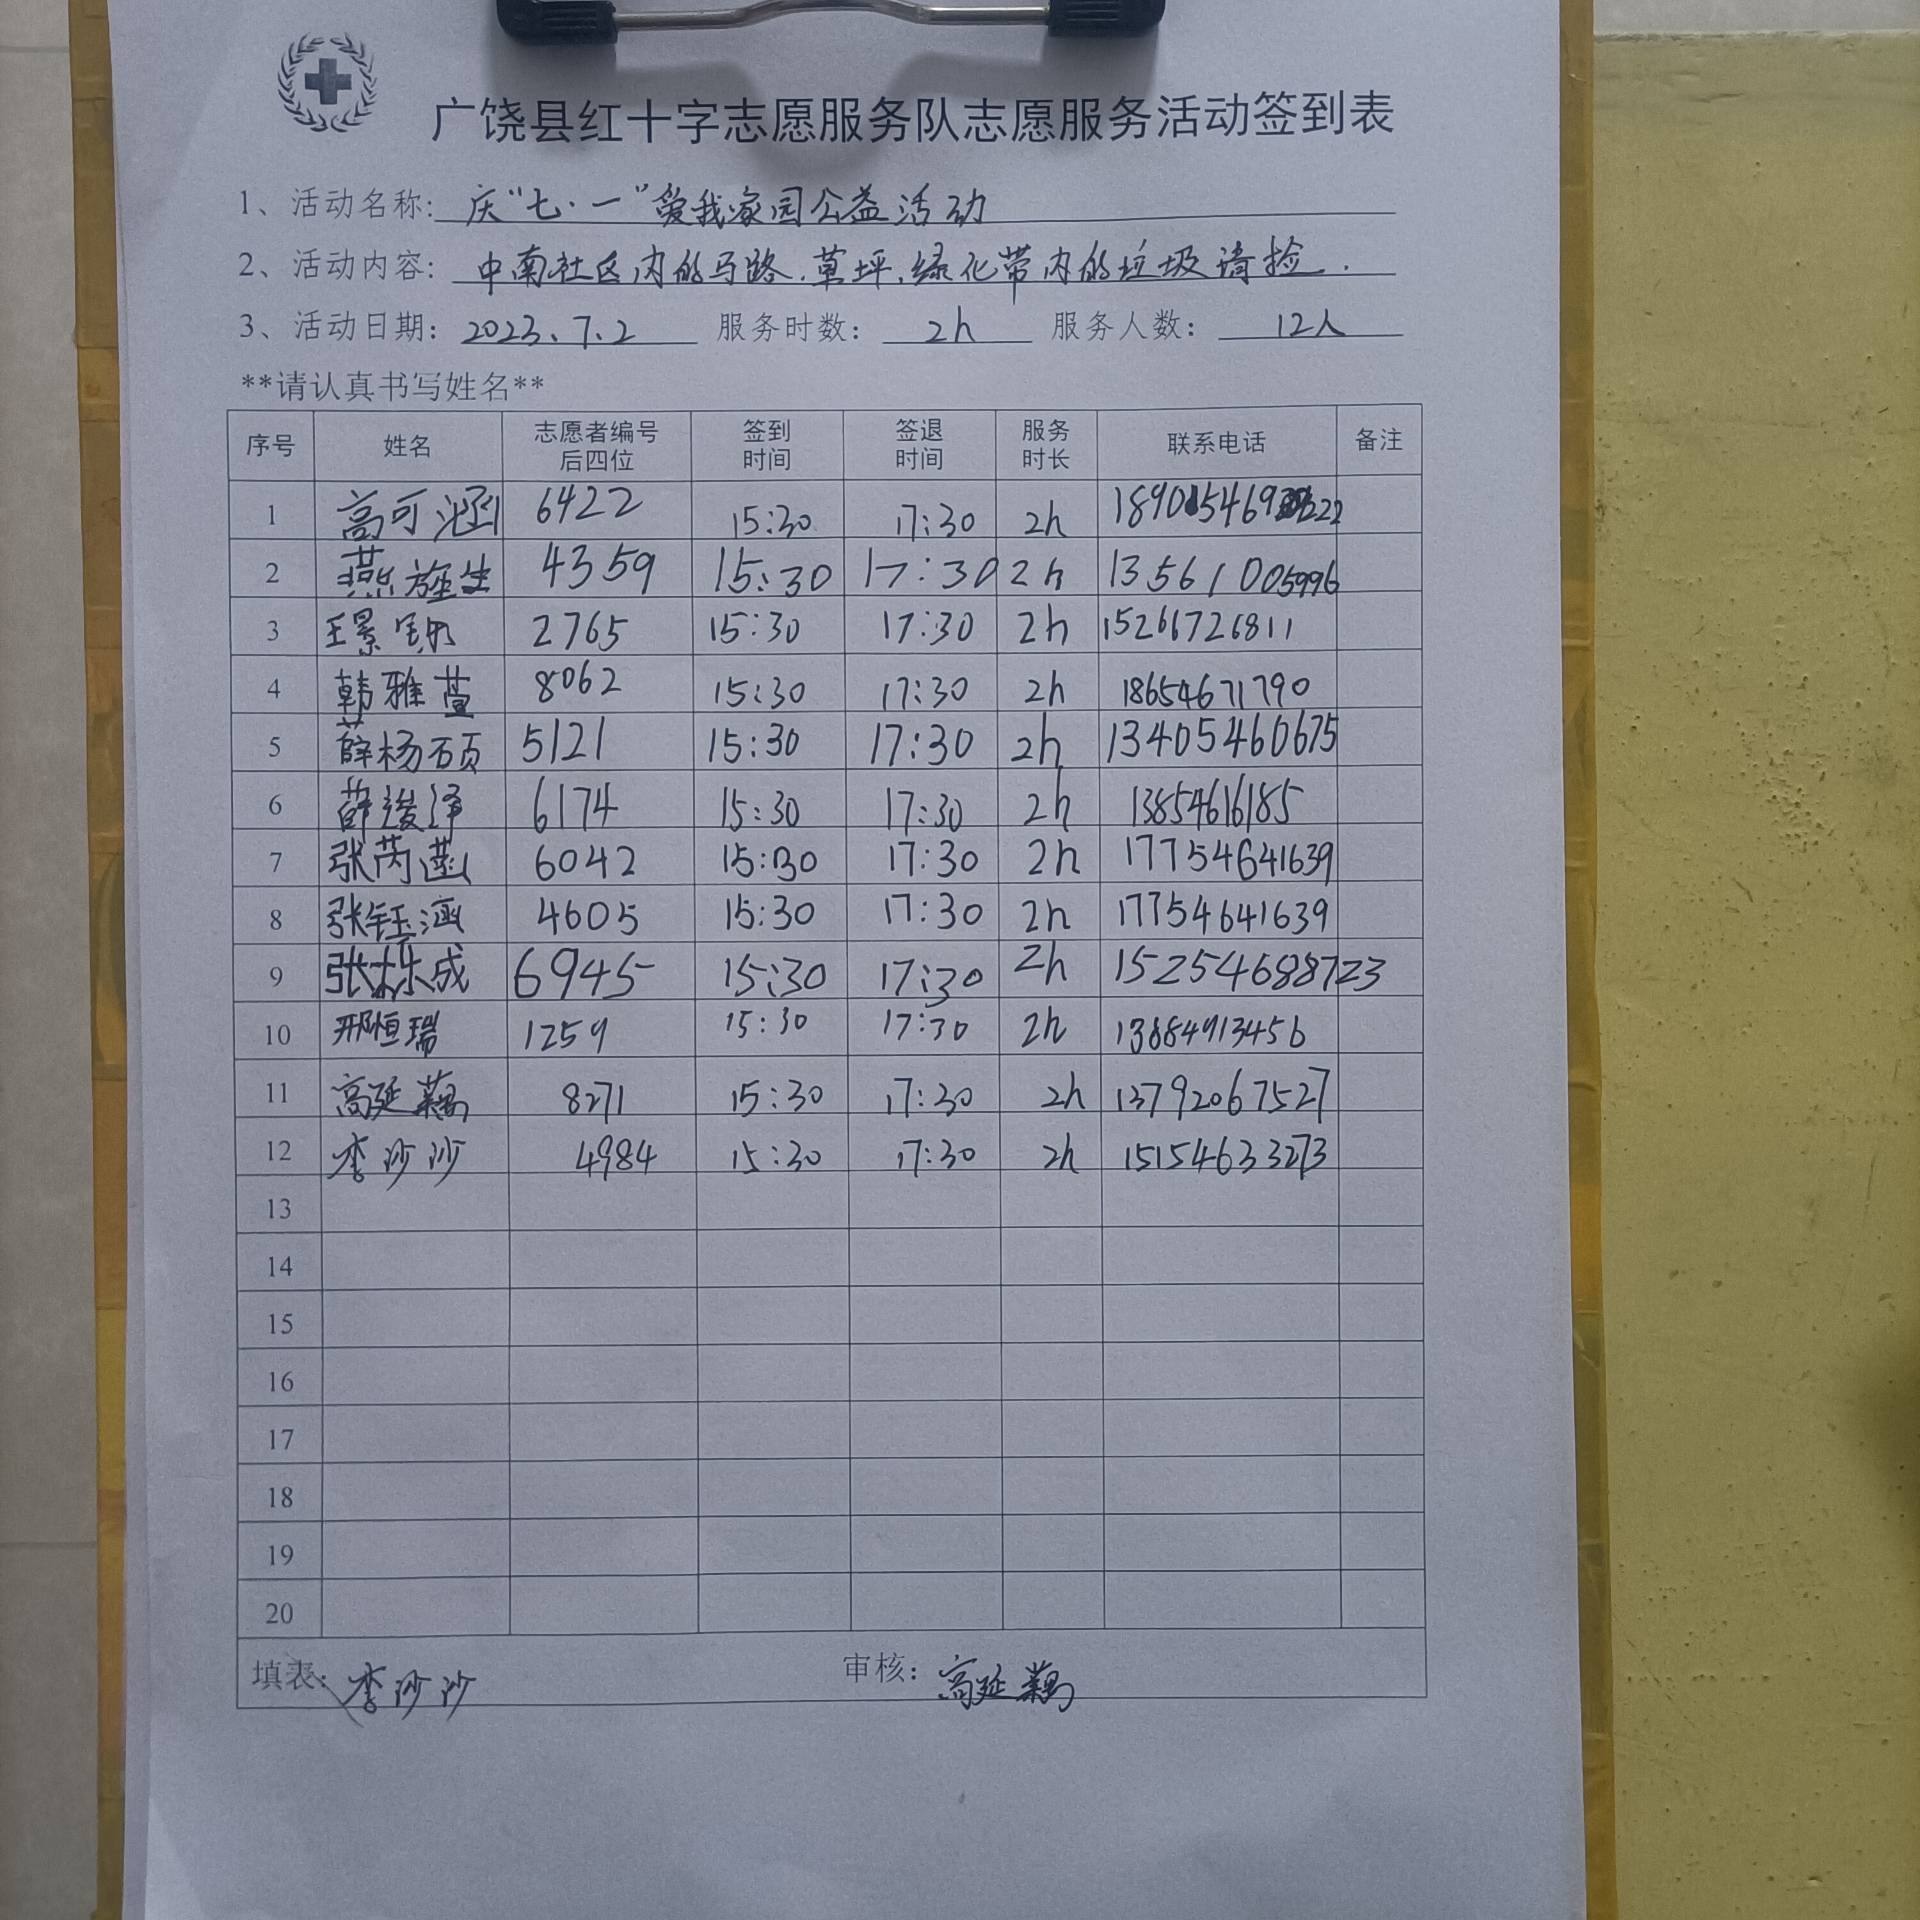 广饶县红十字志愿服务队志愿服务活动签到表
1、活动名称: 庆“七·一”爱我家园公益活动
2、活动内容: 中南社区内的马路、草坪、绿化带内的垃圾清捡.
3、活动日期: 2023.7.2 服务时数: 2h 服务人数: 12人
**请认真书写姓名**
序号 姓名 志愿者编号后四位 签到时间 签退时间 服务时长 联系电话 备注
1 高可涵 6422 15:30 17:30 2h
2 燕旌生 4359 15:30 17:30 2h 13561005996
3 王景 2765 15:30 17:30 2h 15266726811
4 韩雅萱 8062 15:30 17:30 2h 18654671790
5 薛杨硕 5121 15:30 17:30 2h 13405460675
6 薛浚泽 6174 15:30 17:30 2h 13854616185
7 张芮菡 6042 15:30 17:30 2h 17754641639
8 张钰涵 4605 15:30 17:30 2h 17754641639
9 张栎成 6945 15:30 17:30 2h 15254688723
10 邢恒瑞 1259 15:30 17:30 2h 13884913456
11 高延藕 8271 15:30 17:30 2h 13792067527
12 李沙沙 4984 15:30 17:30 2h 15154633273
13
14
15
16
17
18
19
20
填表: 李沙沙 审核: 高延藕